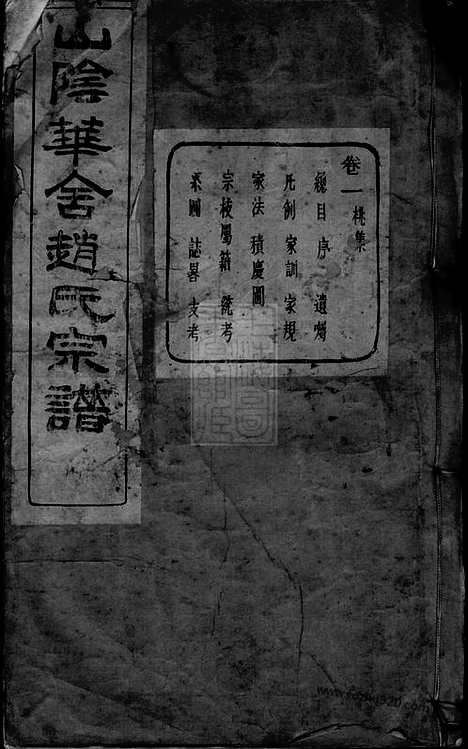 山陰華舍趙氏宗譜
卷一 桃集
總目 序 遺囑
凡例 家訓 家規
家法 積慶圖
宗枝屬籍 統考
系圖 誌畧 支考